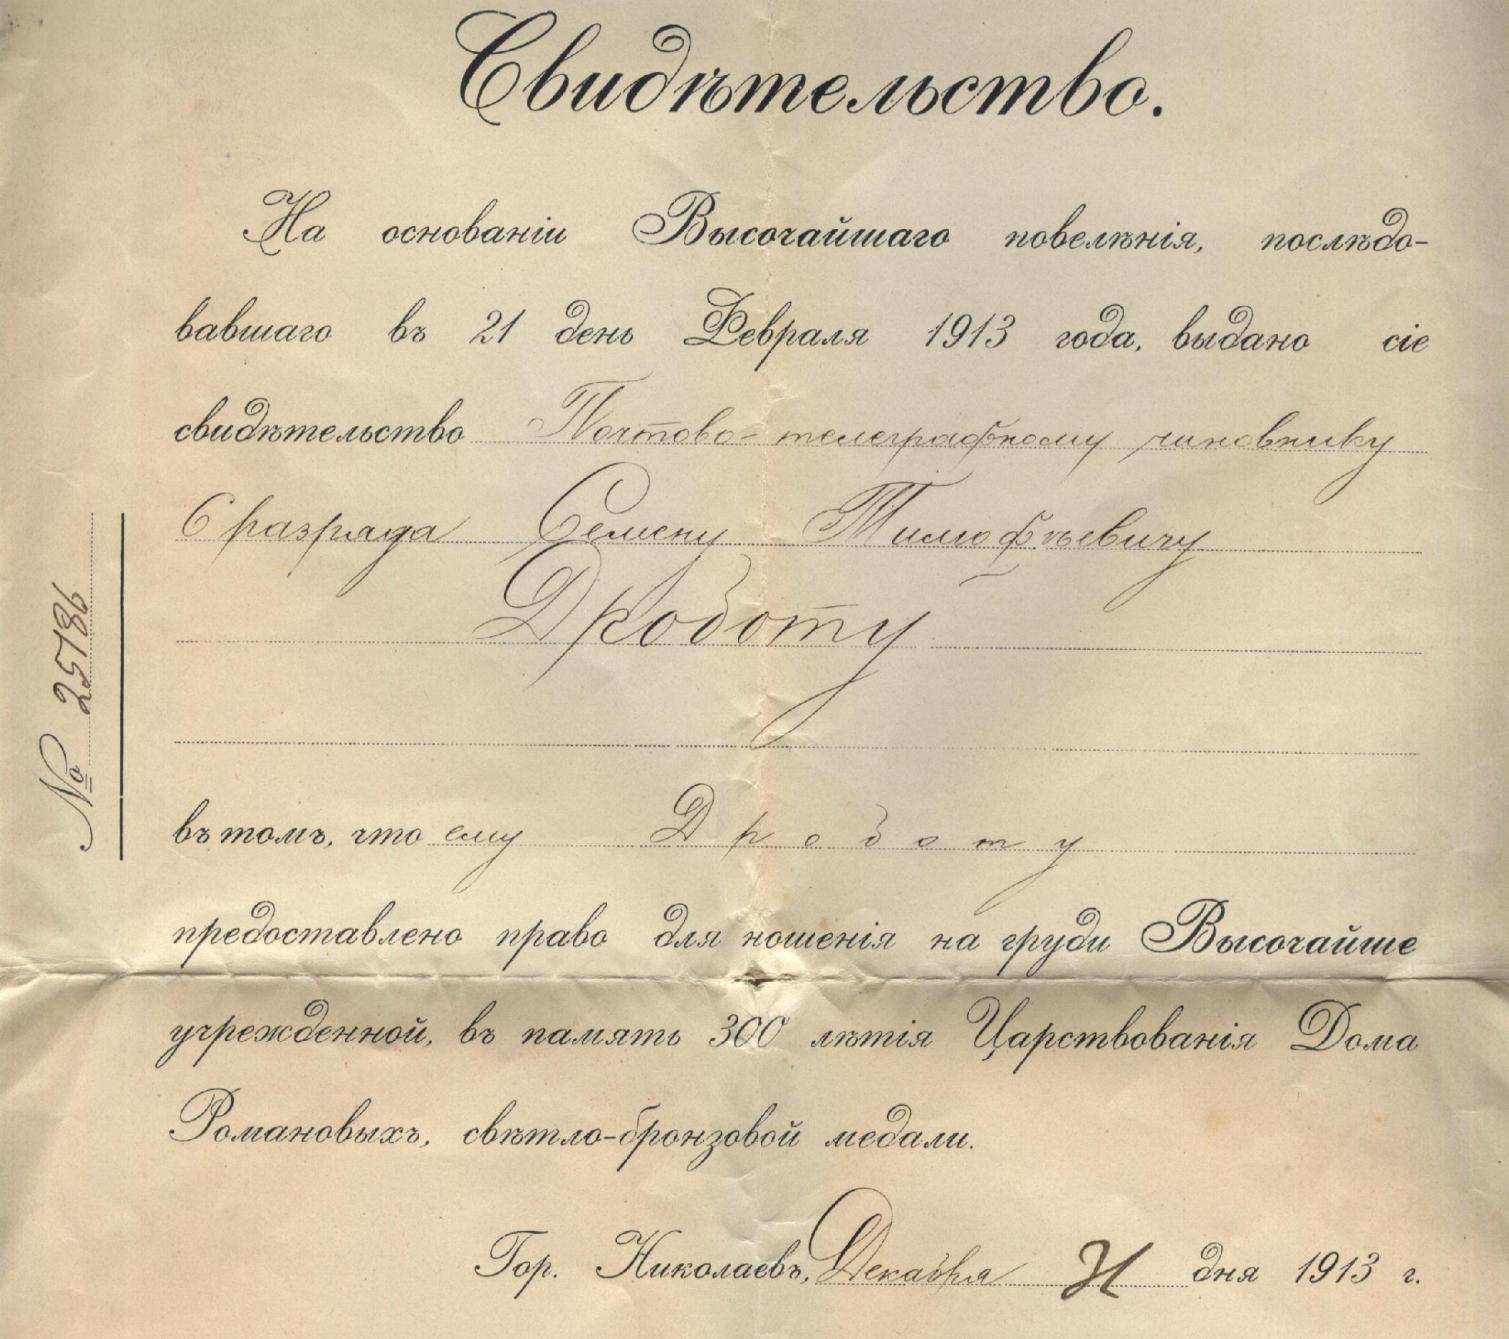 Свидѣтельство.
На основаніи Высочайшаго повелѣнія, послѣдо-
вавшаго въ 21 день Февраля 1913 года, выдано сіе
свидѣтельство Почтово-телеграфному чиновнику
6 разряда Семену Тимофѣевичу
Дроботу
въ томъ, что ему Дроботу
предоставлено право для ношенія на груди Высочайше
учрежденной, въ память 300 лѣтія Царствованія Дома
Романовыхъ, свѣтло-бронзовой медали.
Гор. Николаевъ, Декабря дня 1913 г.
№ 25186